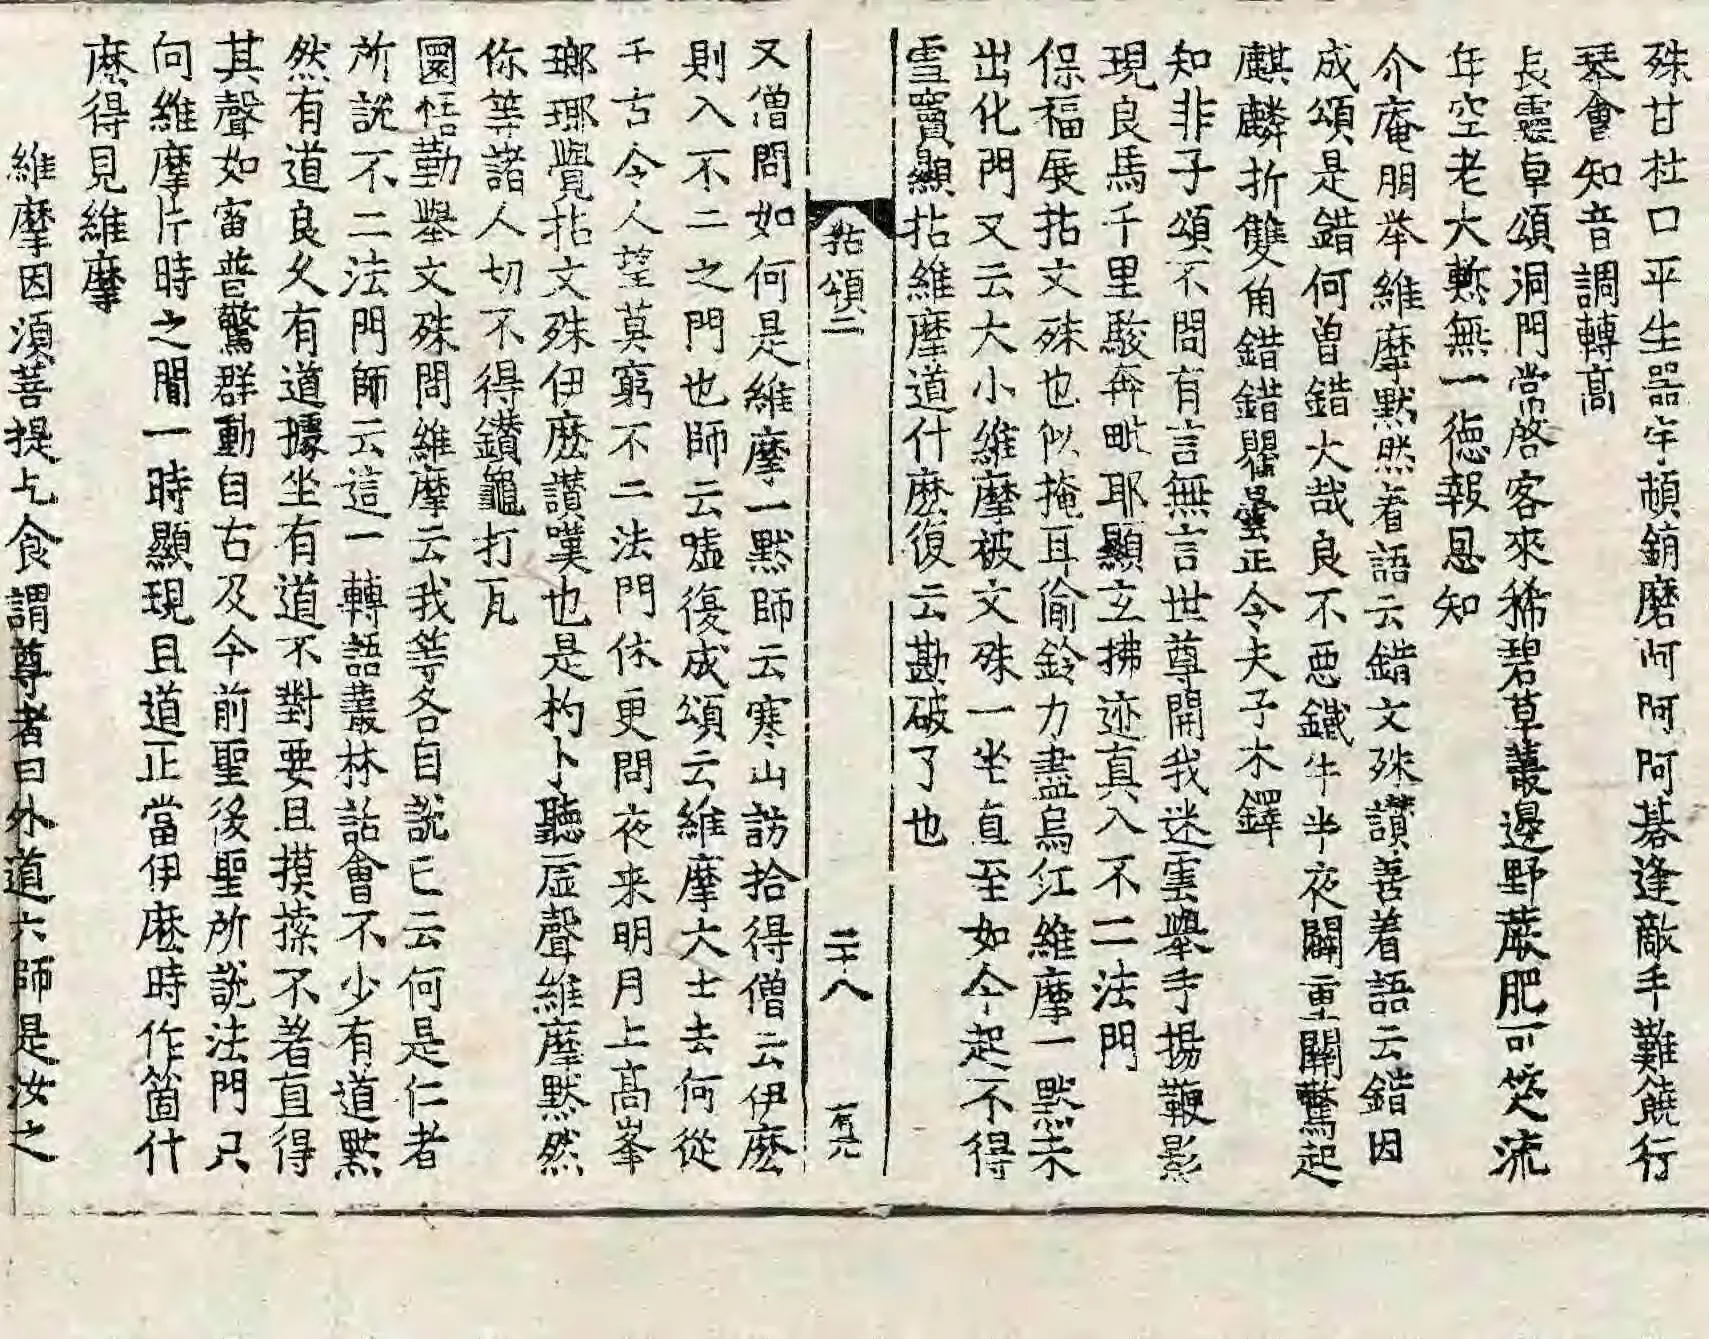 殊甘杜口平生器宇頓銷磨阿阿阿碁逢敵手難饒行
琴會知音調轉高
長靈卓頌洞門常啓客來稀碧草叢邊野蕨肥可笑流
年空老大慙無一德報恩知
介庵朋举維摩默然着語云錯文殊讃善着語云錯因
成頌是錯何曽錯大哉良不惡鐵牛半夜闢重關驚起
麒麟折雙角錯錯瞿曇正令夫子木鐸
知非子頌不問有言無言世尊開我迷雲舉手揚鞭影
現良馬千里駿奔毗耶顯玄拂迹真入不二法門
保福展拈文殊也似掩耳偷鈴力盡烏江維摩一黙未
出化門又云大小維摩被文殊一坐直至如今起不得
雪竇顯拈維摩道什麽復云勘破了也
拈頌二 二十八
又僧問如何是維摩一黙師云寒山訪拾得僧云伊麽
則入不二之門也師云噓復成頌云維摩大士去何從
千古令人望莫窮不二法門休更問夜来明月上高峯
瑯瑘覺拈文殊伊麽讃嘆也是杓卜聽虛聲維摩默然
你等諸人切不得鑽龜打瓦
圜悟勤舉文殊問維摩云我等各自說已云何是仁者
所說不二法門師云這一轉語叢林話會不少有道黙
然有道良久有道據坐有道不對要且摸搽不着直得
其聲如雷普驚群動自古及今前聖後聖所說法門只
向維摩片時之間一時顯現且道正當伊麽時作箇什
麽得見維摩
維摩因湏菩提乞食謂尊者曰外道六師是汝之